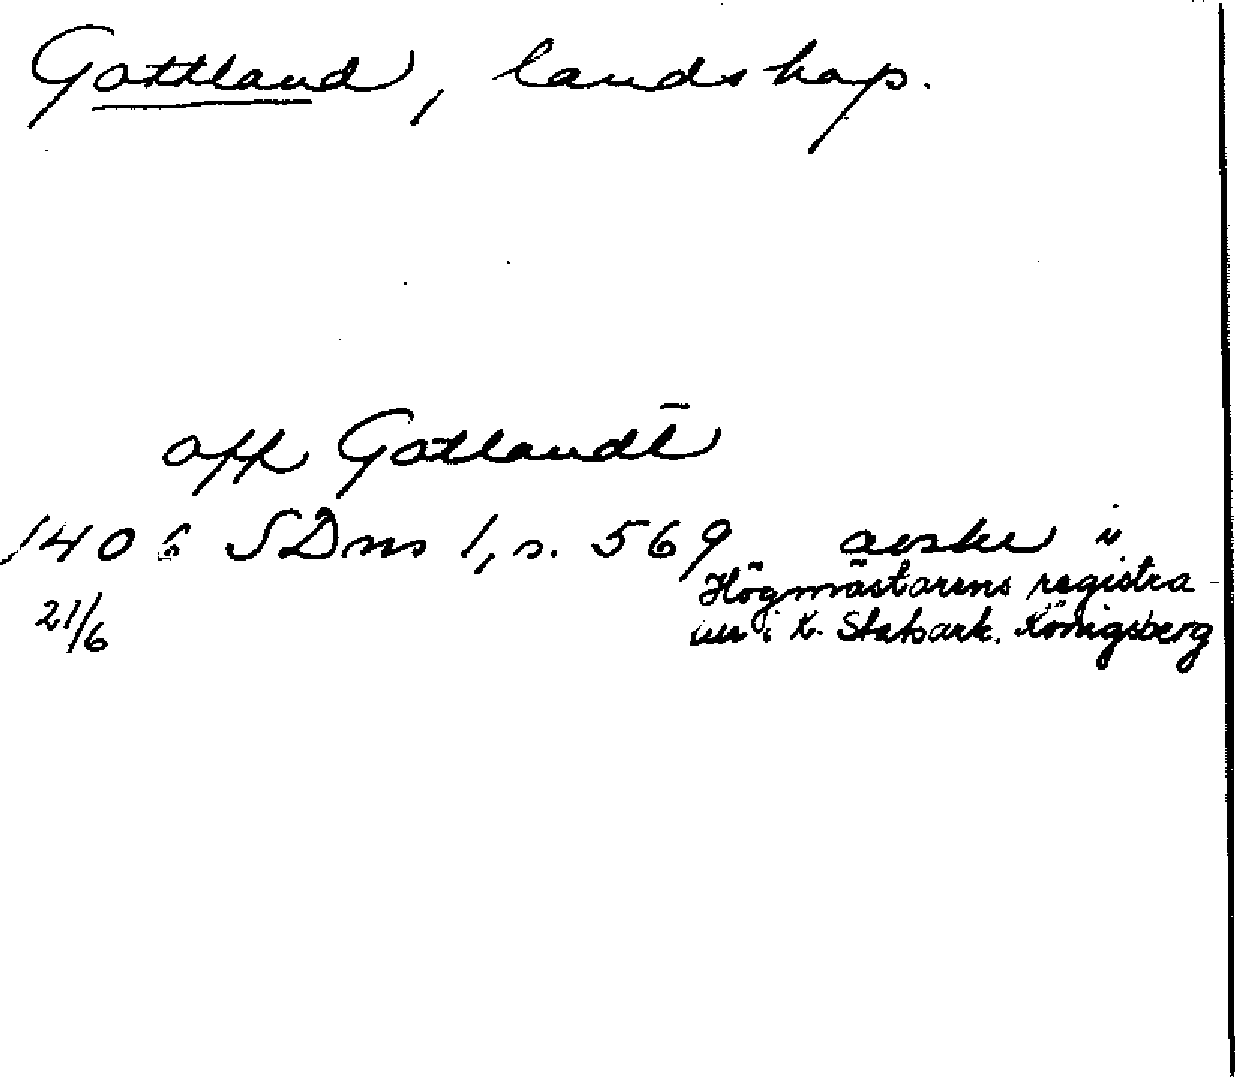 Gottland, landskap.
off Gotlandt̄
1406 SDns 1, s. 569 avskr i
21/6 Högmästarens registra-
um i K. Statsark. Königsberg